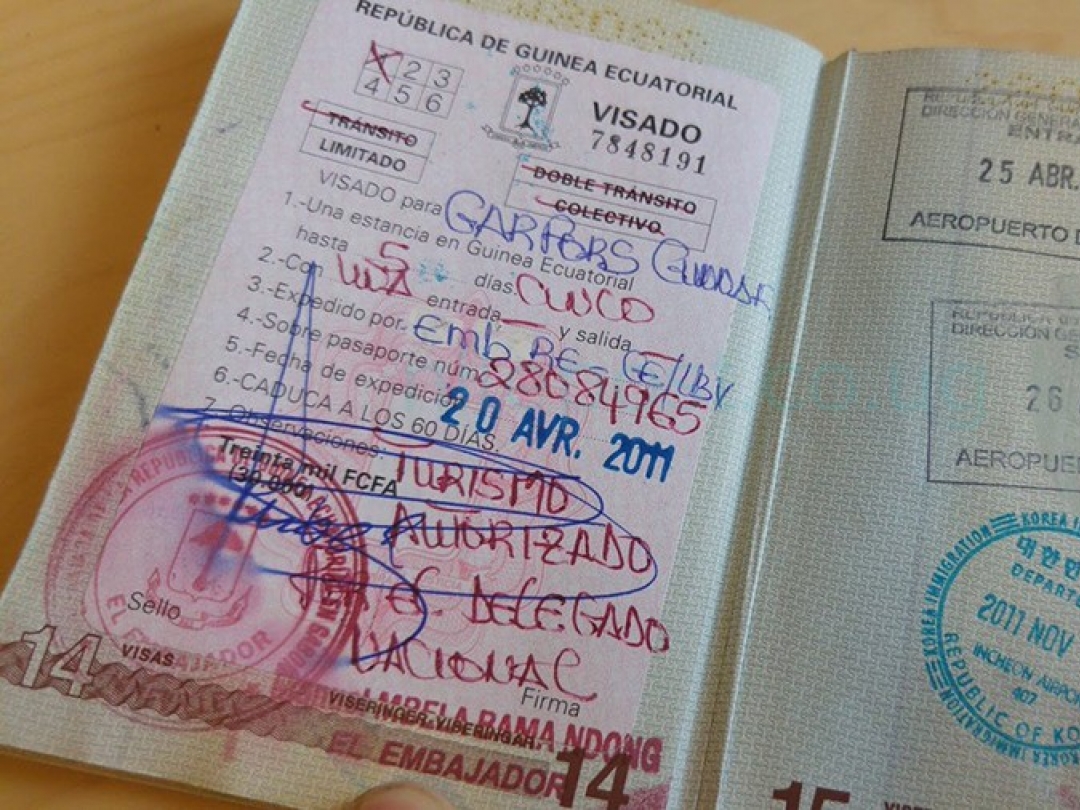 REPÚBLICA DE GUINEA ECUATORIAL
1 2 3
4 5 6
VISADO
7848191
TRÁNSITO
LIMITADO
DOBLE TRÁNSITO
COLECTIVO
VISADO para GARFORS GUNNAR
1.-Una estancia en Guinea Ecuatorial
hasta 5 días. CINCO
2.-Con UNA entrada y salida
3.-Expedido por. Emb RE-GE/LBV
4.-Sobre pasaporte núm. 28084965
5.-Fecha de expedición 20 AVR. 2011
6.-CADUCA A LOS 60 DÍAS.
7.-Observaciones. TURISMO
Treinta mil FCFA
(30.000)
AUTORIZADO
POR EL DELEGADO
NACIONAL
Sello
EL EMBAJADOR
Firma
VISAS
VISERINGER-VISERINGAR
MBELA BAMA NDONG
EL EMBAJADOR
14
14
DIRECCIÓN GENERA
ENTRA
25 ABR.
AEROPUERTO D
DIRECCIÓN G
S
26
AEROPUE
KOREA IMMIGRATION
대한민
DEPARTU
2011 NOV
INCHEON AIRPOR
407
REPUBLIC OF KO
15